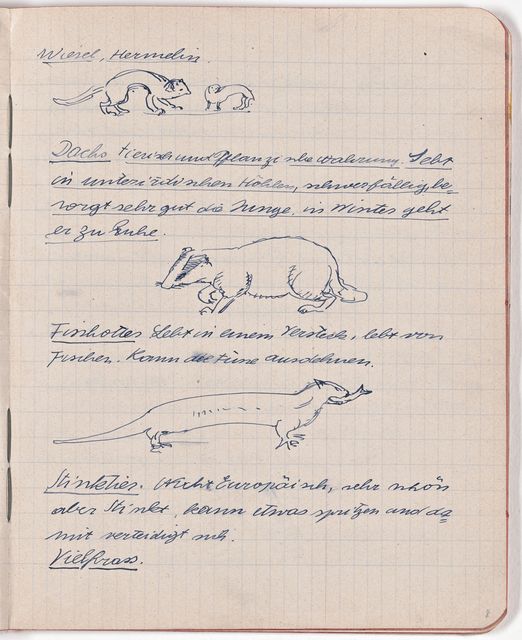 Wiesel, Hermelin.
Dachs, tierisch und Pflanzische Nahrung. Lebt
in unterirdischen Höhlen, schwerfällig, be=
sorgt sehr gut die Junge, in Winter geht
er zu Ruhe.
Fischotter Lebt in einem Versteck, lebt von
Fischen. Kann die Füse ausdehnen.
Stinktier. Nicht Europäisch, sehr schön
aber Stinkt, kann etwas spritzen und da=
mit verteidigt sich.
Vielfrass.
8